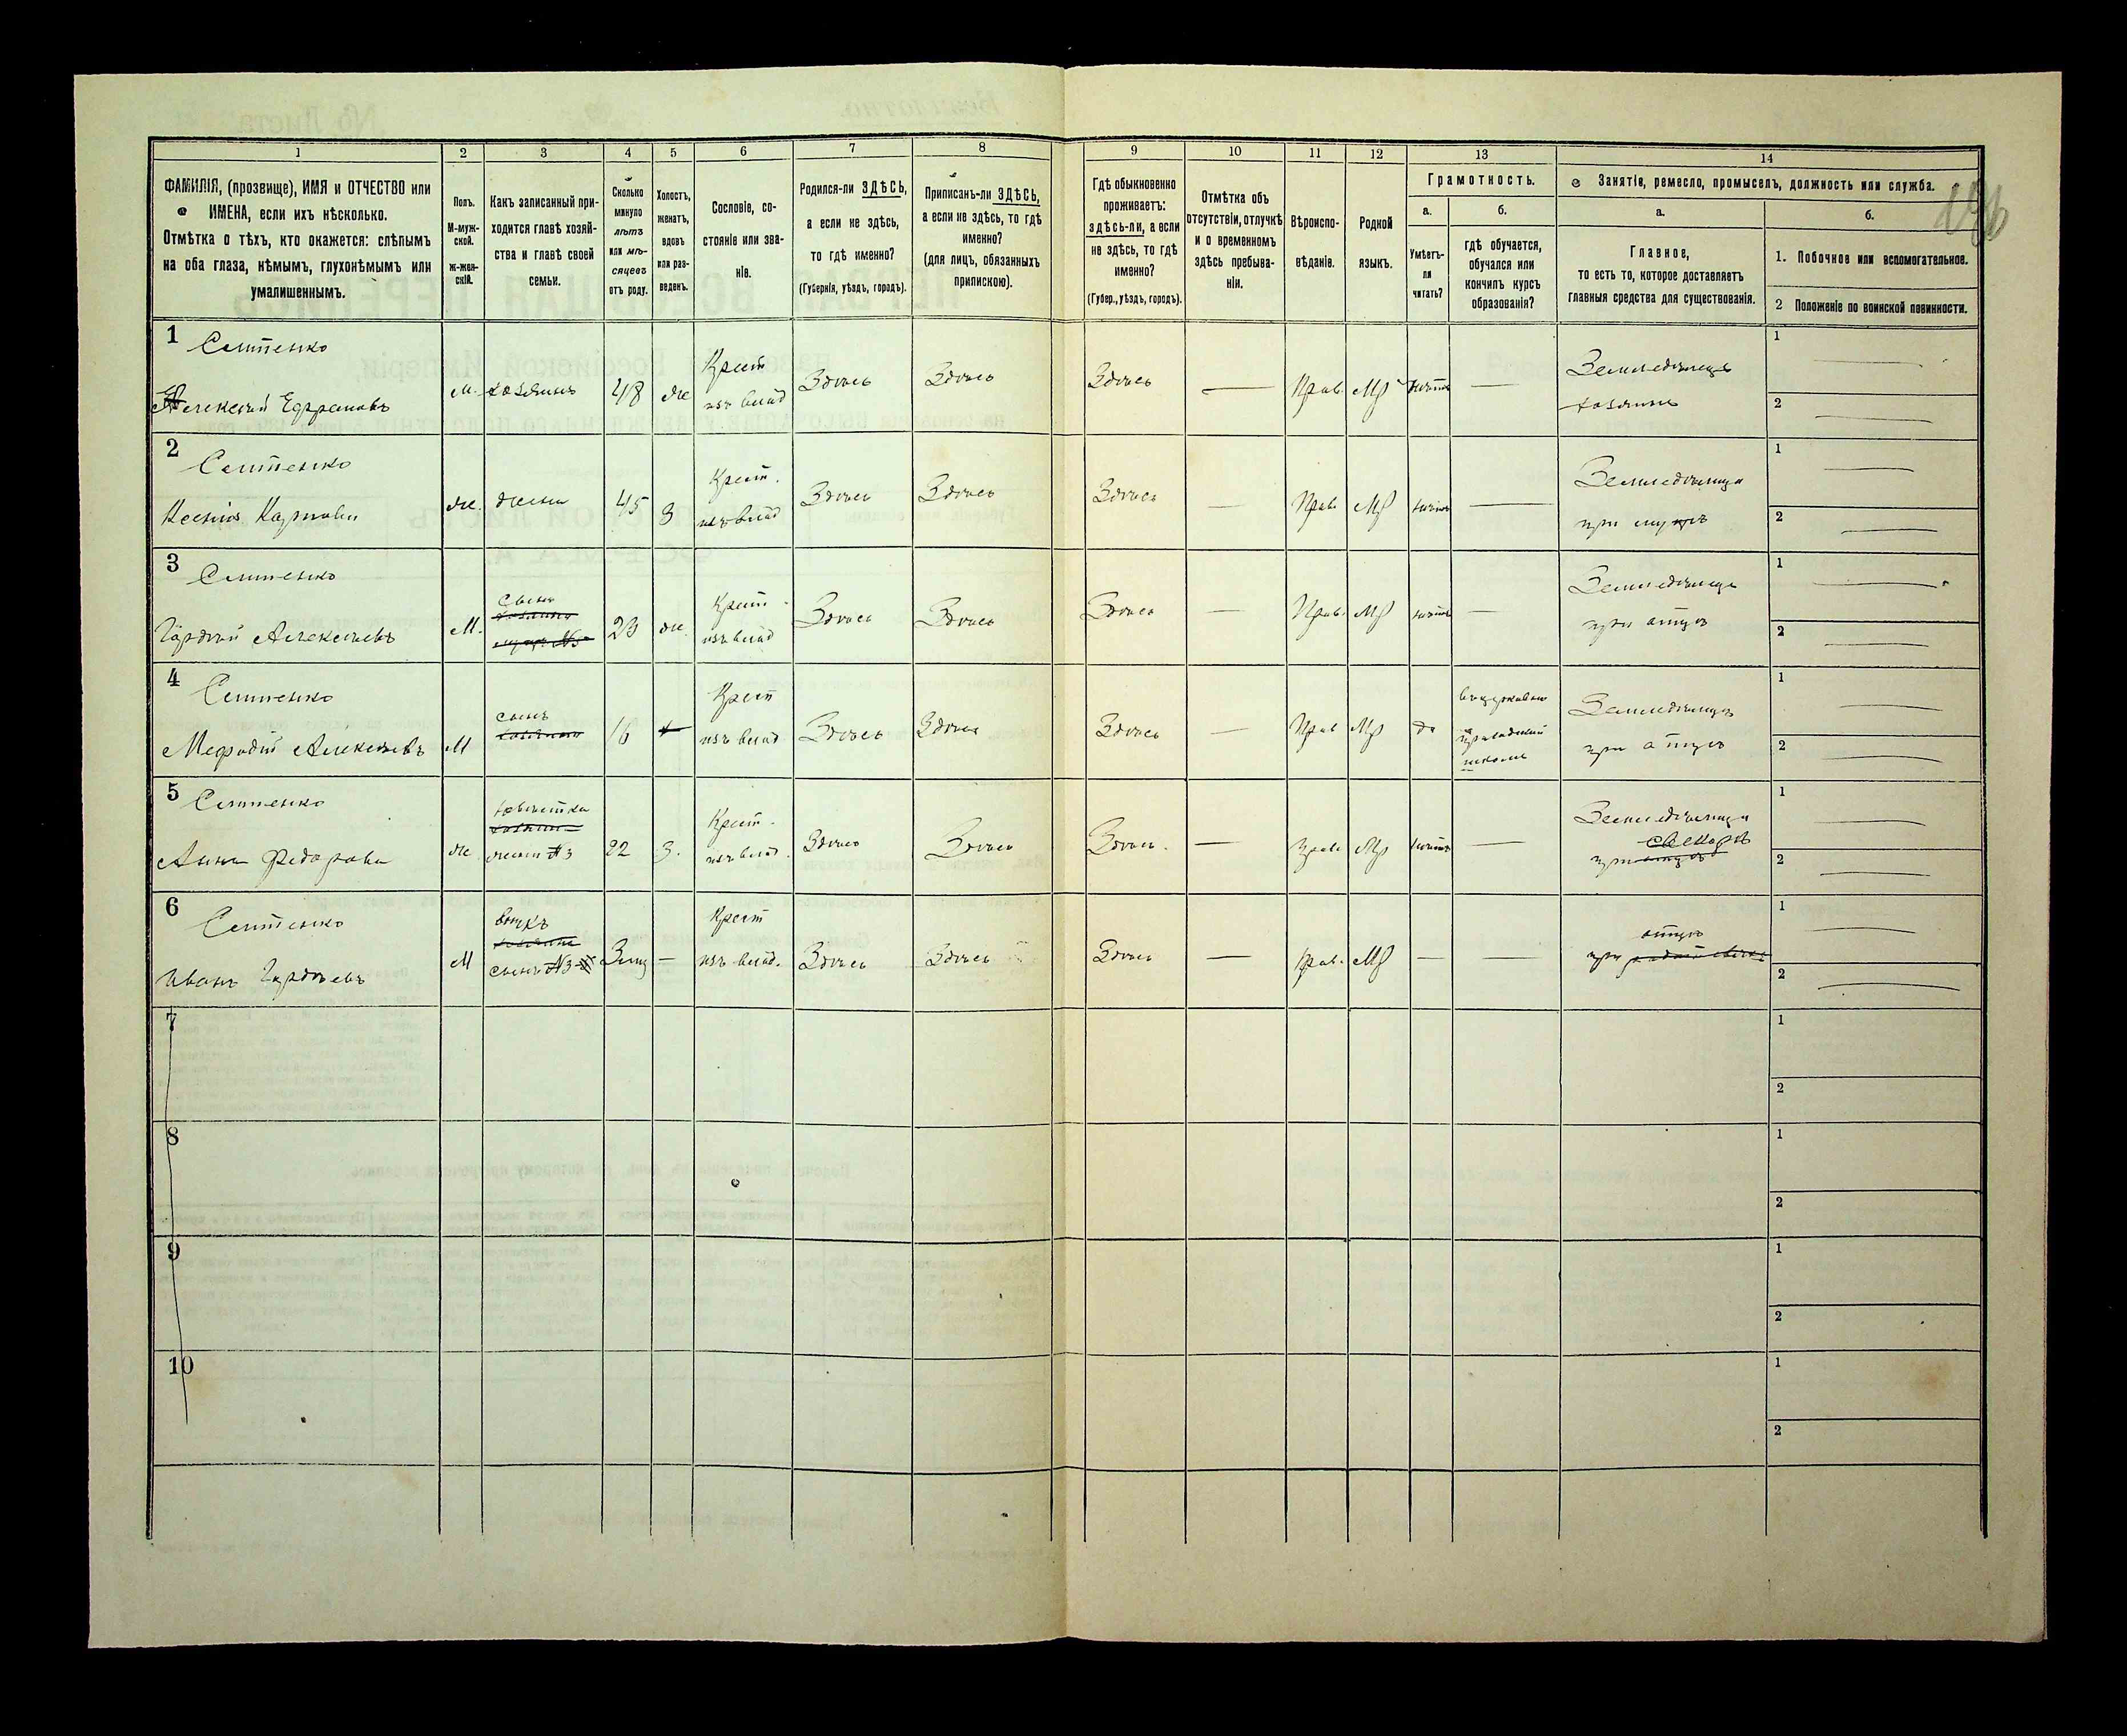 1 2 3 4 5 6 7 8 9 10 11 12 13 14
ФАМИЛІЯ, (прозвище), ИМЯ и ОТЧЕСТВО или
ИМЕНА, если ихъ нѣсколько.
Отмѣтка о тѣхъ, кто окажется: слѣпымъ
на оба глаза, нѣмымъ, глухонѣмымъ или
умалишеннымъ.
Полъ.
М-муж-
ской.
ж-жен-
скій.
Какъ записанный при-
ходится главѣ хозяй-
ства и главѣ своей
семьи.
Сколько
минуло
лѣтъ
или мѣ-
сяцевъ
отъ роду.
Холостъ,
женатъ,
вдовъ
или раз-
веденъ.
Сословіе, со-
стояніе или зва-
ніе.
Родился-ли ЗДѢСЬ,
а если не здѣсь,
то гдѣ именно?
(Губернія, уѣздъ, городъ).
Приписанъ-ли ЗДѢСЬ,
а если не здѣсь, то гдѣ
именно?
(для лицъ, обязанныхъ
припискою).
Гдѣ обыкновенно
проживаетъ:
здѣсь-ли, а если
не здѣсь, то гдѣ
именно?
(Губер., уѣздъ, городъ).
Отмѣтка объ
отсутствіи, отлучкѣ
и о временномъ
здѣсь пребыва-
ніи.
Вѣроиспо-
вѣданіе.
Родной
языкъ.
Грамотность.
а.
Умѣетъ-
ли
читать?
б.
гдѣ обучается,
обучался или
кончилъ курсъ
образованія?
Занятіе, ремесло, промыселъ, должность или служба.
а.
Главное,
то есть то, которое доставляетъ
главныя средства для существованія.
б.
1. Побочное или вспомогательное.
2 Положеніе по воинской повинности.
1
Алексѣй Ефремовъ
м. хозяинъ 48 же
Крест
изъ влад
Здѣсь Здѣсь Здѣсь — Прав. Мр нѣтъ —
Земледѣлецъ
хозяинъ
1 —
2 —
2
Ксенія Карпова
же. жена 45 З
Крест.
изъ влад
Здѣсь Здѣсь Здѣсь — Прав. Мр нѣтъ —
Земледѣлица
при мужѣ
1 —
2 —
3
Гордѣй Алексѣевъ
М.
сынъ
23 же.
Крест
изъ влад
Здѣсь Здѣсь Здѣсь — Прав. Мр нѣтъ —
Земледѣлецъ
при отцѣ
1 —
2 —
4
Мефодій Алексѣевъ
М
сынъ
хозяина
16 х
Крест
изъ влад
Здѣсь Здѣсь Здѣсь — Прав Мр да
въ церковно
приходской
школѣ
Земледѣлецъ
при отцѣ
1 —
2 —
5
Анна Федорова
же.
невѣстка
жена №3
22 З.
Крест.
изъ влад.
Здѣсь Здѣсь Здѣсь. — Прав Мр нѣтъ —
Земледѣлица
свекорѣ
при отцѣ
1 —
2 —
6
Иванъ Гордѣевъ
М
внукъ
сынъ №3
3 мц —
Крест
изъ влад.
Здѣсь Здѣсь Здѣсь — Прав. Мр — —
отцѣ
при
1 —
2 —
7
1
2
8
1
2
9
1
2
10
1
2